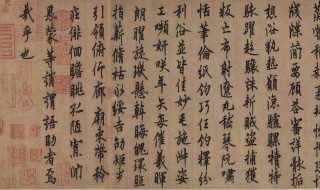 牋牒簡要顧答審詳骸垢
想浴執熱願涼驢騾犢特
駭躍超驤誅斬賊盜捕獲
叛亡布射遼丸嵇琴阮嘯
恬筆倫紙鈞巧任釣釋紛
利俗並皆佳妙毛施淑姿
工嚬妍咲年矢每催羲暉
朗曜璇璣懸斡晦魄環照
指薪脩祜永綏吉劭矩步
引領俯仰廊廟束帶矜
莊徘徊瞻眺孤陋寡聞
愚蒙等誚謂語助者焉
哉乎也